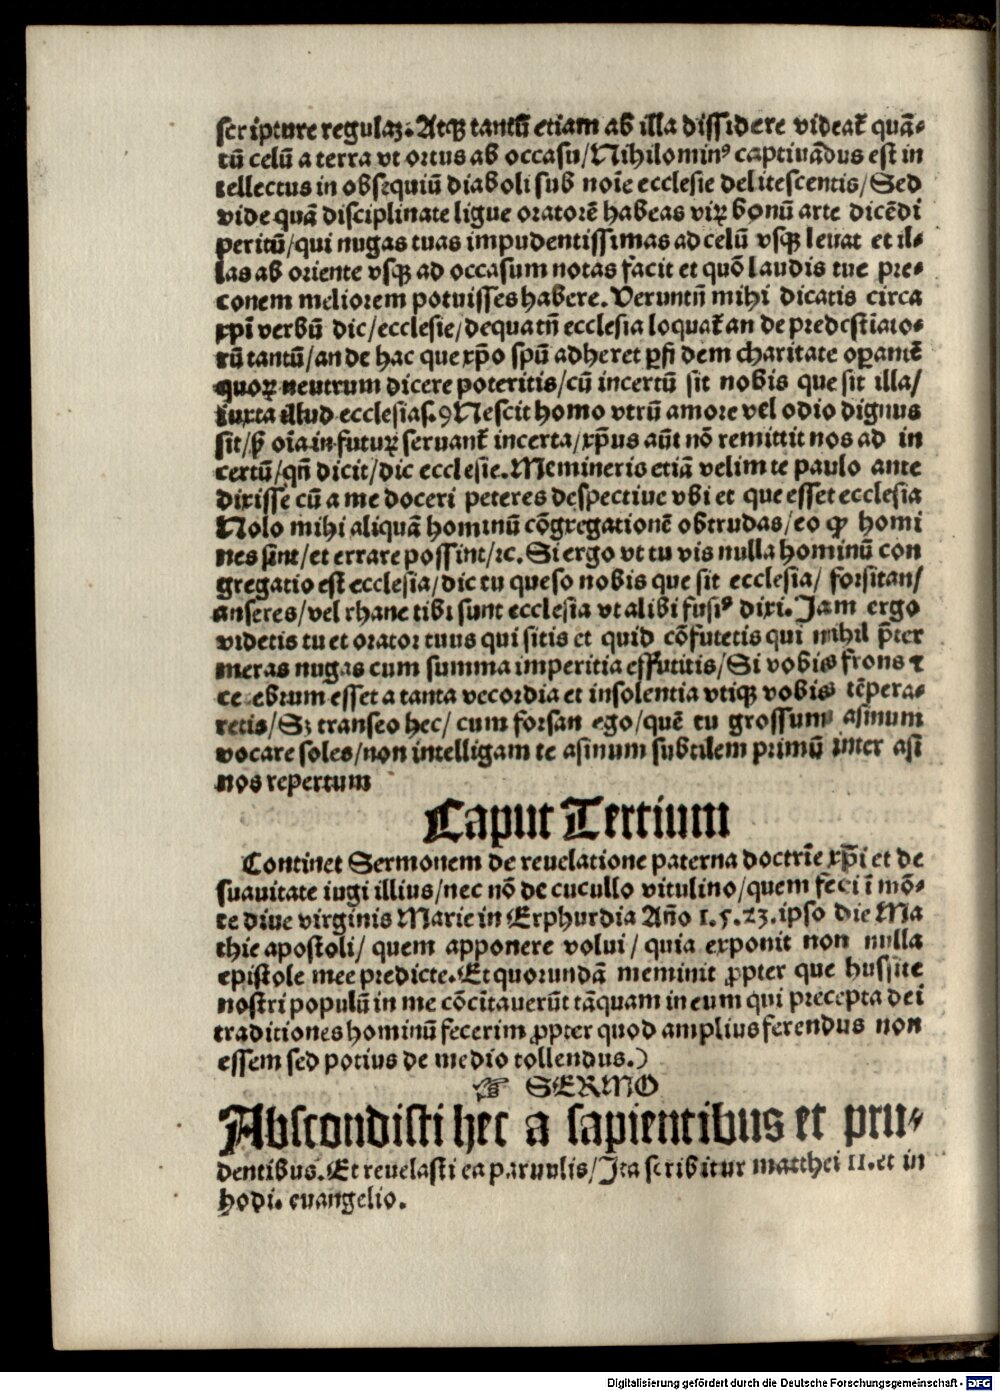 scripture regulaꝫ. Atqꝫ tantū etiam ab illa dissidere videat̄ quā-
tū celū a terra vt ortus ab occasu/Nihilominꝰ captiuādus est in
tellectus in obsequiū diaboli sub noīe ecclesie delitescentis/Sed
vide quā disciplinate ligue oratorē habeas viꝝ bonū arte dicēdi
peritū/qui nugas tuas impudentissimas ad celū vsqꝫ leuat et il-
las ab oriente vsqꝫ ad occasum notas facit et quō laudis tue pre-
conem meliorem potuisses habere. Veruntn̄ mihi dicatis circa
xp̄i verbū dic/ecclesie/de qua tn̄ ecclesia loquat̄ an de predestīato-
rū tantū/an de hac que xp̄o spū adheret ꝑ fidem charitate oꝑantē
quoꝝ neutrum dicere poteritis/cū incertū sit nobis que sit illa/
iuxta illud ecclesias. 9 Nescit homo vtrū amore vel odio dignus
sit/ꝫ oīa in futuꝝ seruant̄ incerta/xp̄us aūt nō remittit nos ad in
certū/qn̄ dicit/dic ecclesie. Memineris etiā velim te paulo ante
dixisse cū a me doceri peteres despectiue vbi et que esset ecclesia
Nolo mihi aliquā hominū cōgregationē obtrudas/eo ꝙ homi
nes sint/et errare possint/ꝛc. Si ergo vt tu vis nulla hominū con
gregatio est ecclesia/dic tu queso nobis que sit ecclesia/ forsitan/
anseres/vel rhane tibi sunt ecclesia vt alibi fusiꝰ dixi. Jam ergo
videtis tu et orator tuus qui sitis et quid cōfutetis qui nihil p̄ter
meras nugas cum summa imperitia effutitis/Si vobis frons ⁊
cerebrum esset a tanta vecordia et insolentia vtiqꝫ vobis tēpera-
retis/Sꝫ transeo hec/ cum forsan ego/quē tu grossum asinum
vocare soles/non intelligam te asinum subtilem primū inter asi
nos repertum
Caput Tertium
Continet Sermonem de reuelatione paterna doctrīe xp̄i et de
suauitate iugi illius/nec nō de cucullo vitulino/quem feci ī mō-
te diue virginis Marie in Erphurdia Año 1.5.23. ipso die Ma
thie apostoli/ quem apponere volui/ quia exponit non nulla
epistole mee predicte. Et quorundā meminit ꝓpter que hussite
nostri populū in me cōcitauerūt tāquam in eum qui precepta dei
traditiones hominū fecerim ꝓpter quod amplius ferendus non
essem sed potius de medio tollendus.)
☞ SERMO
Abscondisti hec a sapientibus et pru-
dentibus. Et reuelasti ea paruulis/Ita scribitur matthei 11. et in
hodi. euangelio.
Digitalisierung gefördert durch die Deutsche Forschungsgemeinschaft - DFG